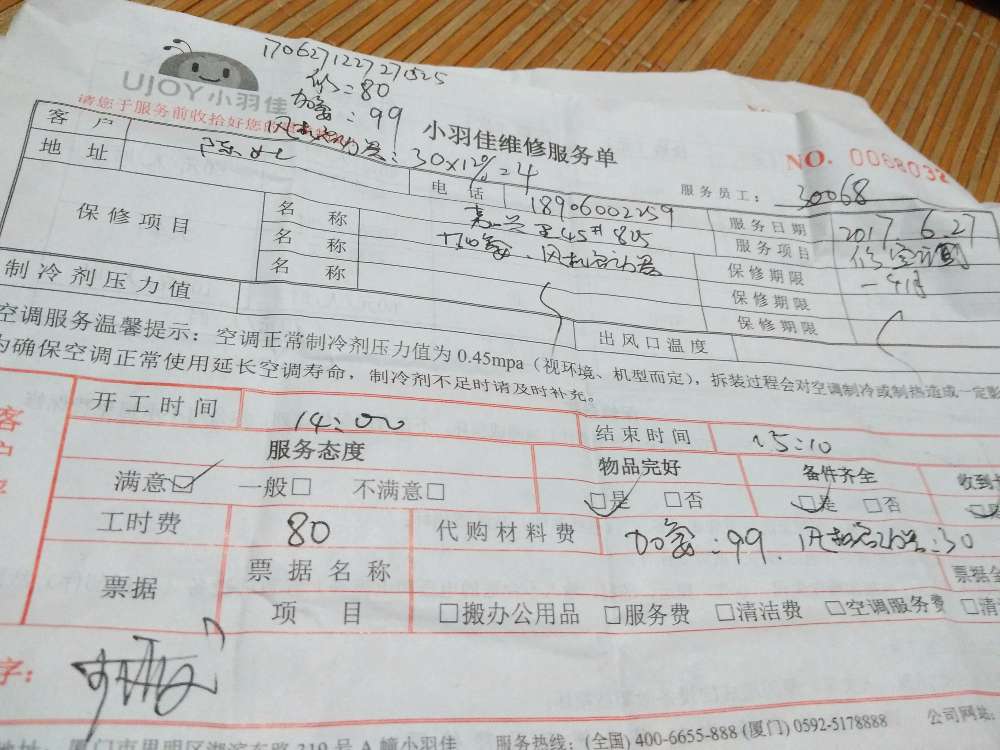 1706271227271525
UJOY小羽佳
价:80
加氟:99
请您于服务前收拾好您的
风机启动器:30×12%=4
小羽佳维修服务单
NO. 0068032
服务员工: 30068
客户 陈
电话 18906002259
服务日期 2017.6.27
地址
服务项目 修空调
保修项目
名称 加氟、风机启动器
保修期限 一个月
名称
保修期限
名称
保修期限
制冷剂压力值
出风口温度
空调服务温馨提示: 空调正常制冷剂压力值为 0.45mpa (视环境、机型而定), 拆装过程会对空调制冷或制热造成一定影
为确保空调正常使用延长空调寿命, 制冷剂不足时请及时补充。
开工时间 14:00
结束时间 15:10
服务态度
物品完好
备件齐全
收到
满意☑ 一般□ 不满意□
☑是 □否
☑是 □否
工时费 80
代购材料费 加氟:99. 风机启动器:30
票据
票据名称
票据金
项目
□搬办公用品 □服务费 □清洁费 □空调服务费 □清
字:
地址: 厦门市思明区湖滨东路 319 号 A 幢小羽佳
服务热线: (全国) 400-6655-888 (厦门) 0592-5178888
公司网址: